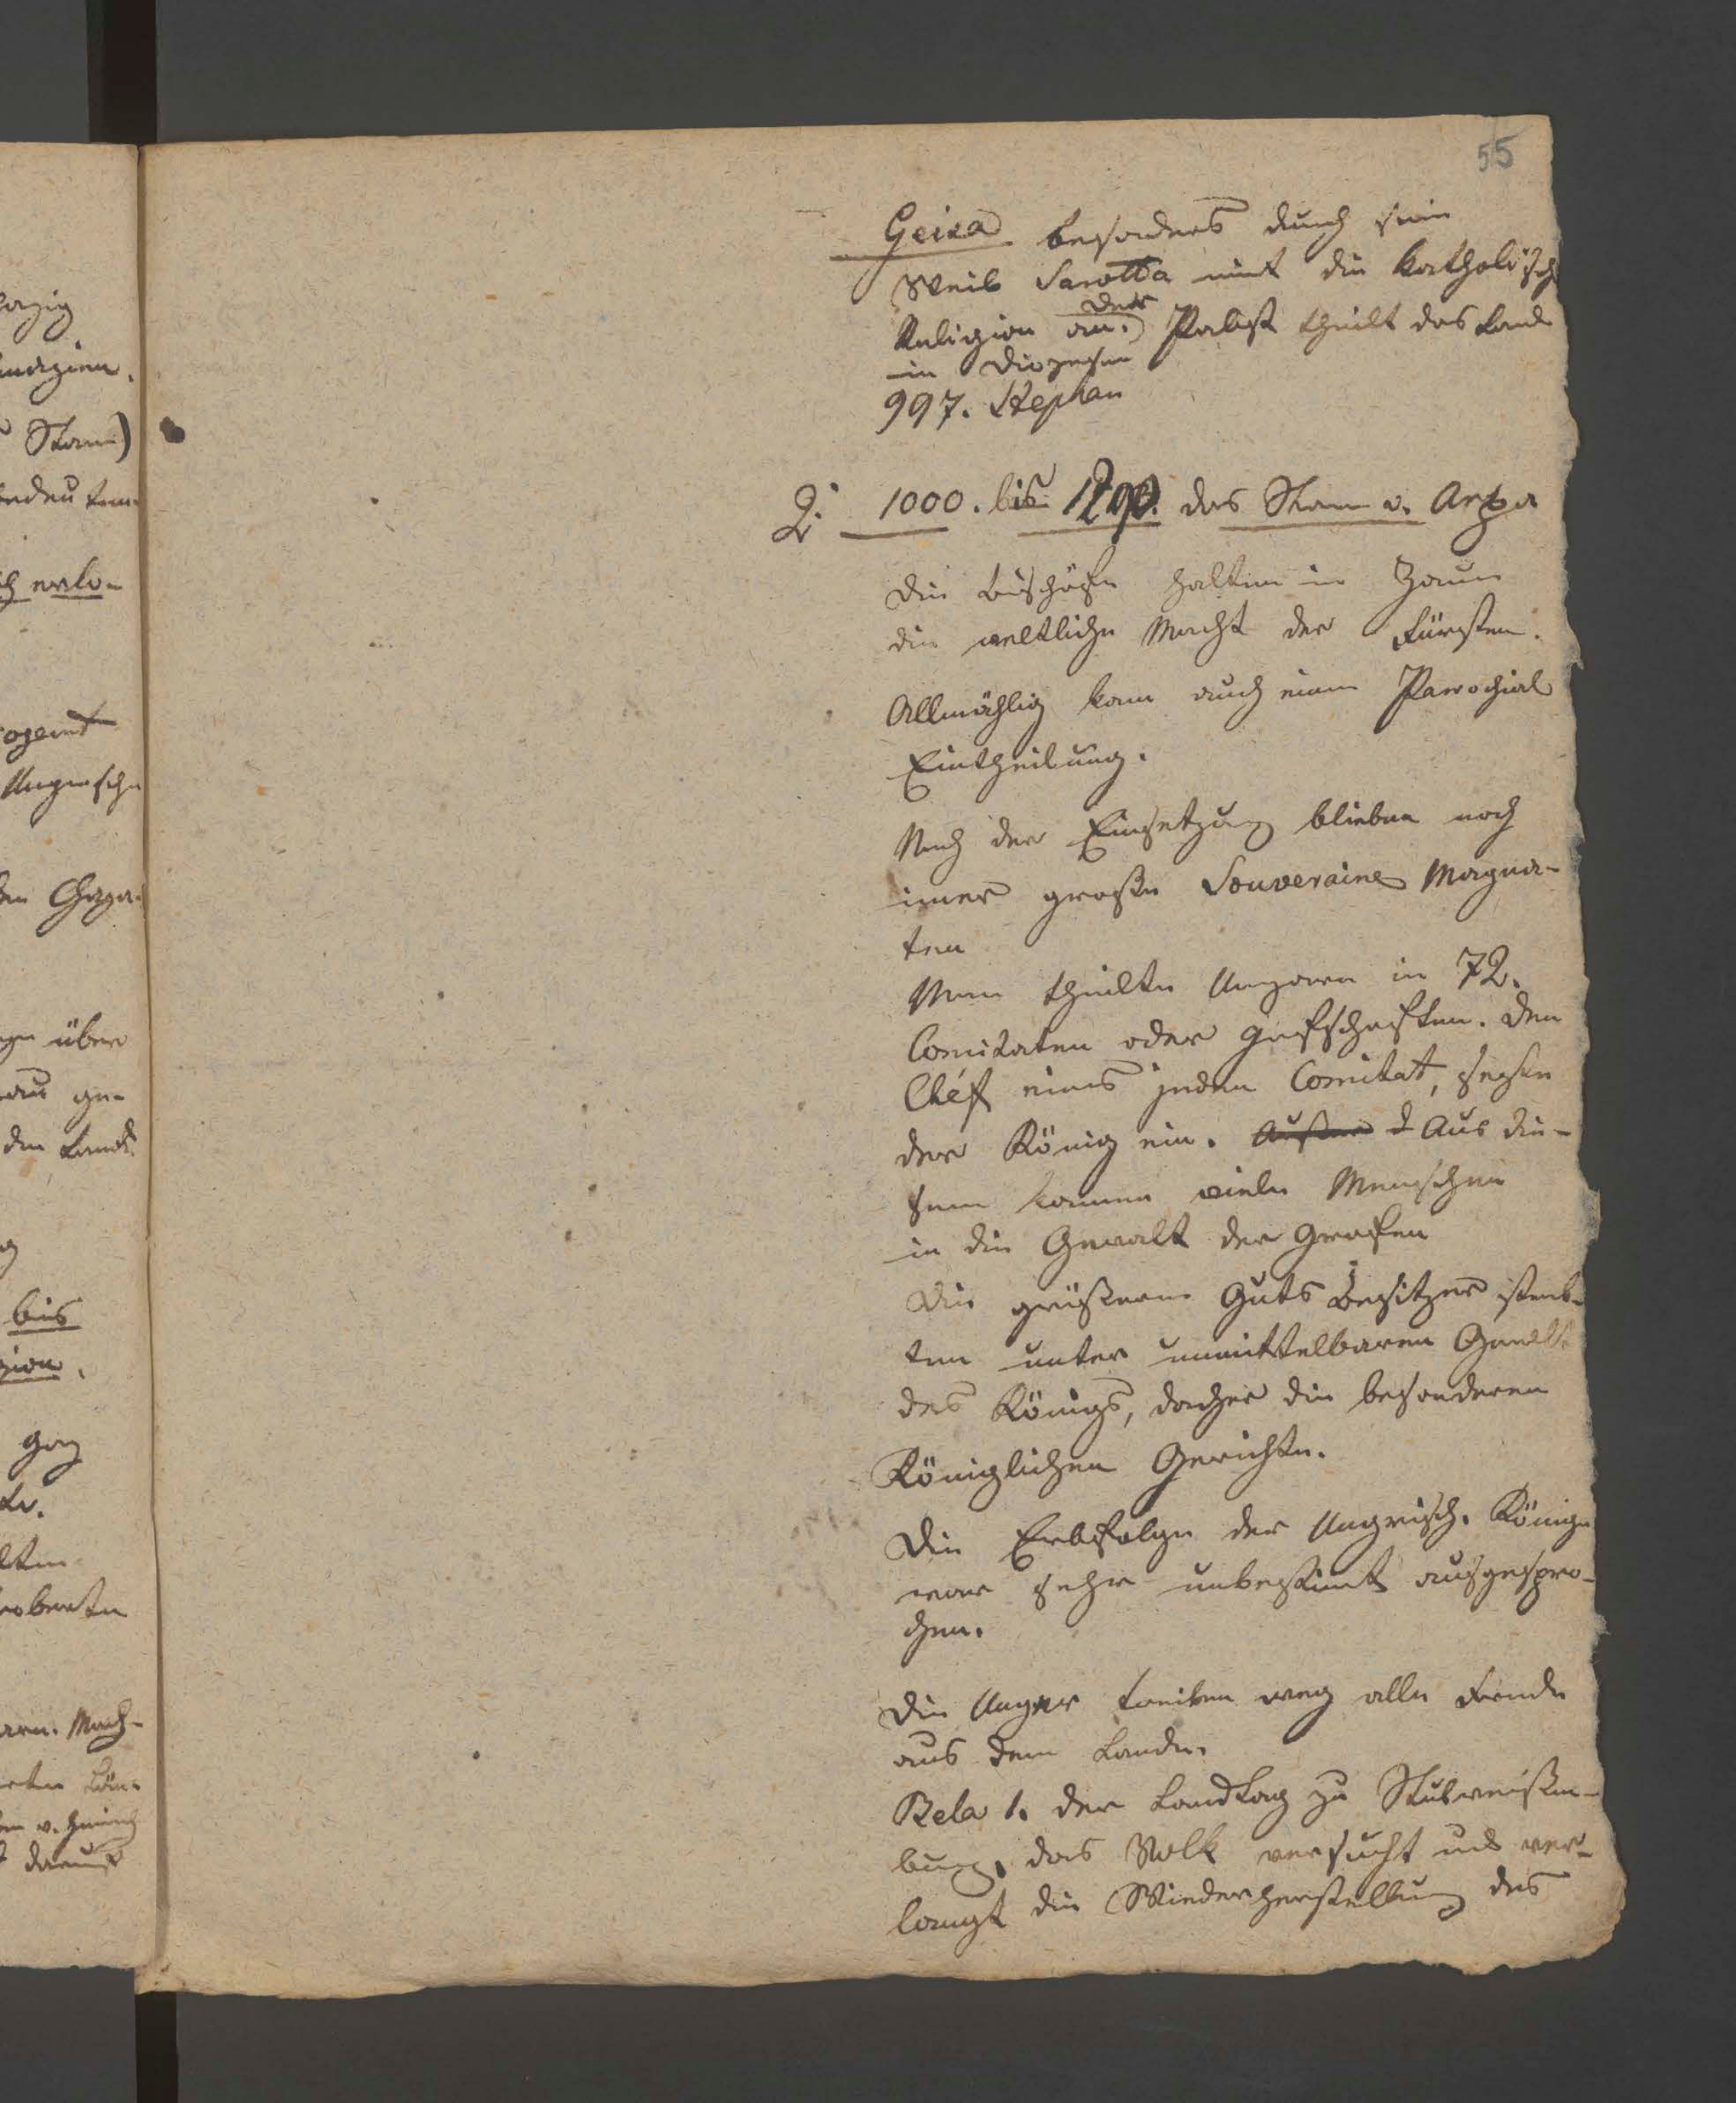 55
Geiza besonders durch sein
Weib Sarotta nimt die katholisch
Religion an. der Pabst theilt das Land
in Diozesen
997. Stephan
2. 1000. bis 1290. das Stam v. Arpa
Die Bischöfe halten in Zaum
die weltliche Macht der Fürsten.
Allmählig kam auch eine Parochial
Eintheilung.
Nach der Einsetzung blieben noch
imer große Souveraine Magna-
ten
Man theilte Ungarn in 72.
Comitaten oder Gafschaften. Den
Chéf eines jeden Comitat, sezte
der König ein. Aus die-
sem kamen viele Menschen
in die Gewalt der Grafen
Die größern Guts Besitzer
ten unter unmittelbaren Gewalt
des Königs, daher die besonderen
Königlichen Gerichte.
Die Erbfolge der Ungrisch. Könige
war sehr unbestimt ausgespro-
chen.
Die Unger treiben weg alle Feinde
aus dem Lande.
Bela 1. der Landtag zu Stulweißen-
burg, das Volk versucht und ver-
langt die Wiederherstellung des
lazig
Stam)
erlo-
Ungrische
über
ge-
den Land
bis
gion.
ganz
oberte
Mach-
darauf